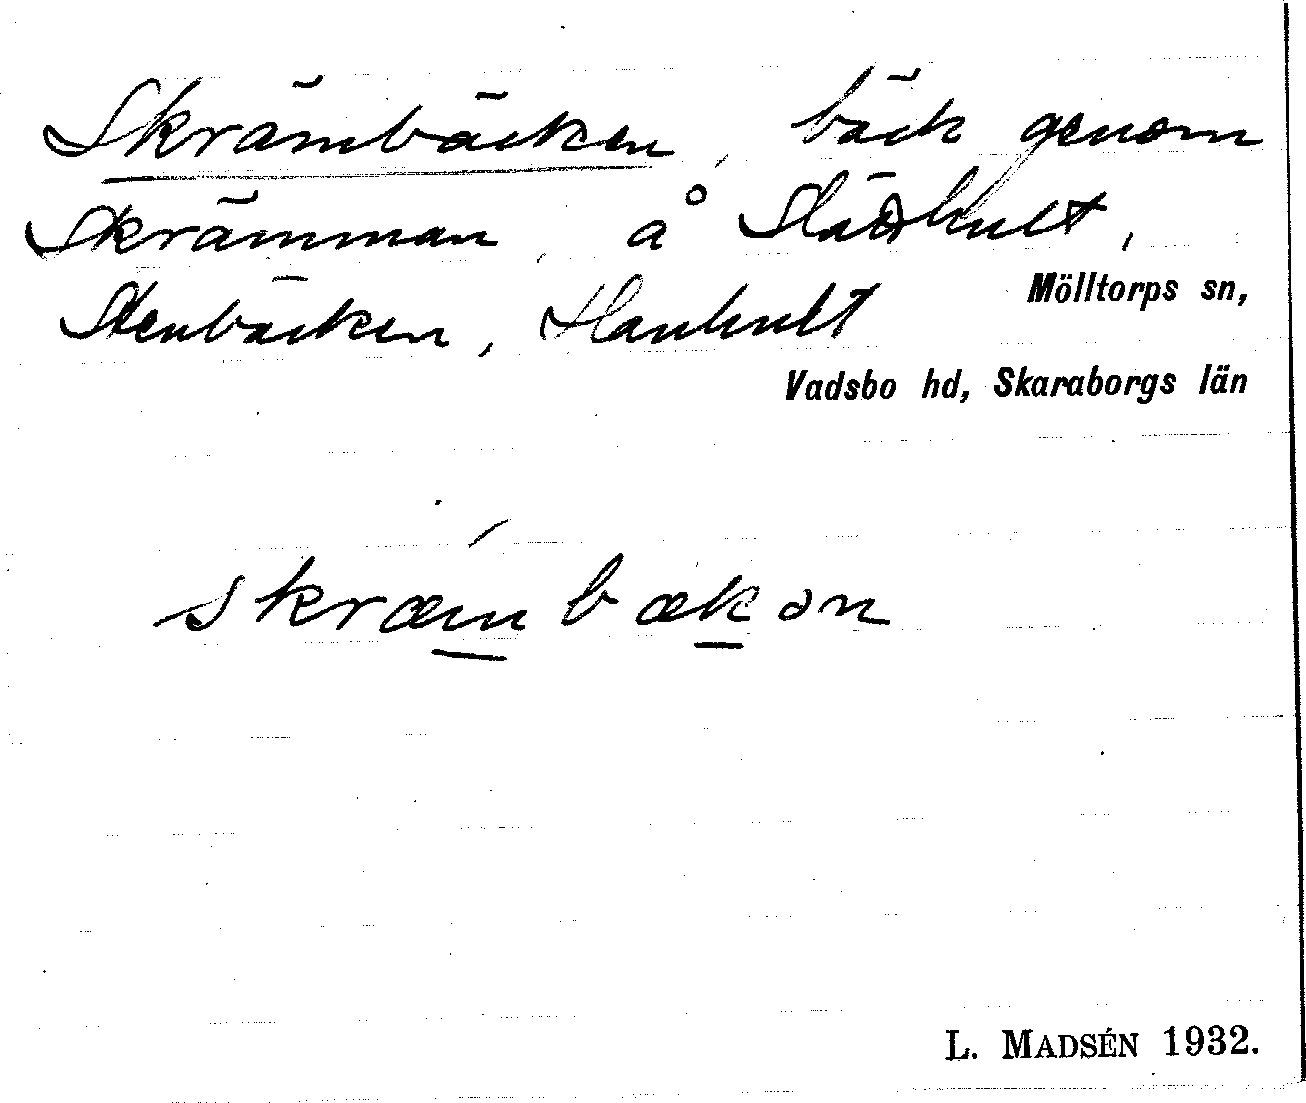 Skrämbäcken, bäck genom
Skrämman, å Slädhult,
Stenbäcken, Hanhult
Mölltorps sn,
Vadsbo hd, Skaraborgs län
skræmbækən
L. MADSÉN 1932.